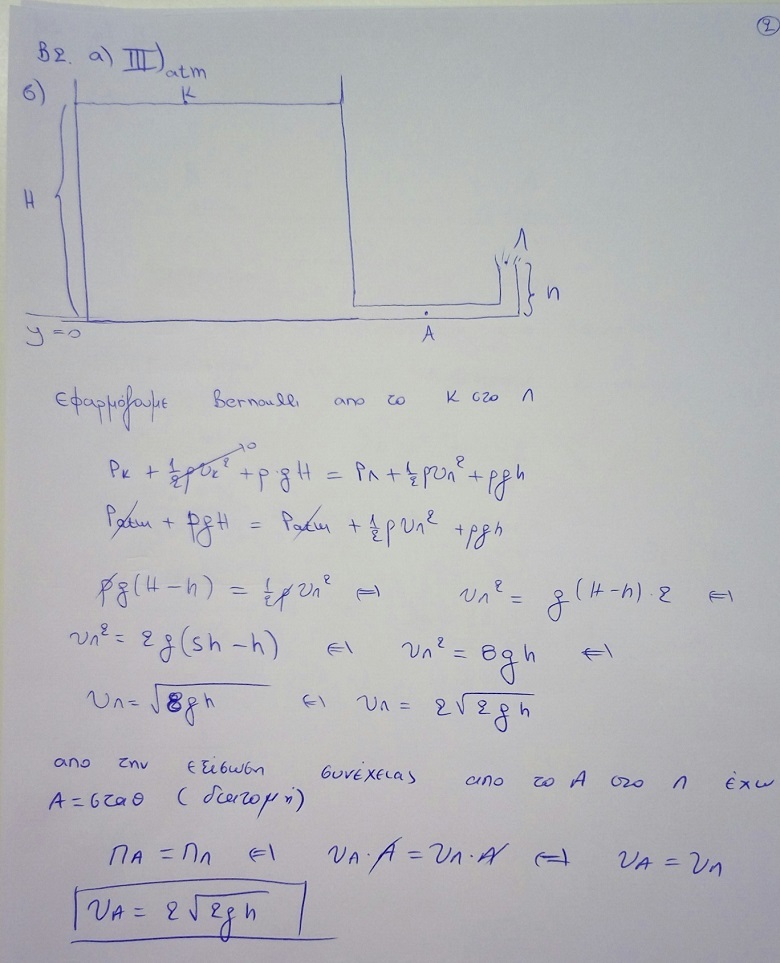 2
B2. α) III)
atm
K
б)
H
Λ
h
y=0
A
Εφαρμόζουμε Bernoulli απο το Κ στο Λ
Pκ + ½ρυκ² →0 + ρ·gH = PΛ + ½ρυΛ² + ρgh
Patm + ρgH = Patm + ½ρυΛ² + ρgh
ρg(H-h) = ½ρυΛ² ⇔ υΛ² = g(H-h)·2 ⇔
υΛ² = 2g(5h-h) ⇔ υΛ² = 8gh ⇔
υΛ = √8gh ⇔ υΛ = 2√2gh
απο την εξίσωση συνέχειας απο το Α στο Λ έχω
Α=σταθ (διατομή)
ΠΑ = ΠΛ ⇔ υΑ·Α = υΛ·Α ⇔ υΑ = υΛ
υΑ = 2√2gh